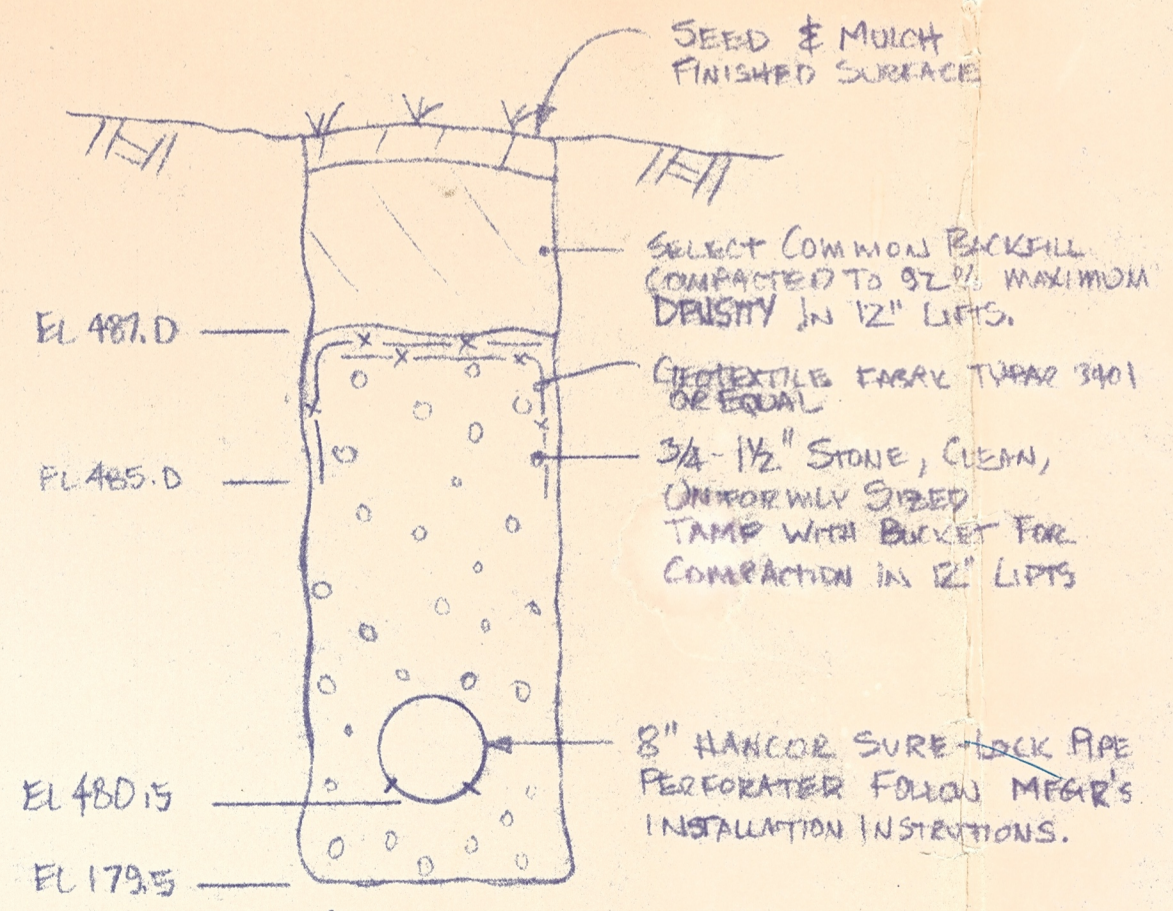 SEED & MULCH
FINISHED SURFACE
SELECT COMMON BACKFILL
COMPACTED TO 92% MAXIMUM
DENSITY IN 12" LIFTS.
EL 487.0
GEOTEXTILE FABRK TYPAR 3401
OR EQUAL
3/4 - 1 1/2" STONE, CLEAN,
UNIFORMILY SIZED
TAMP WITH BUCKET FOR
COMPACTION IN 12" LIFTS
EL 485.0
8" HANCOR SURE-LOCK PIPE
PERFORATED FOLLOW MFGR'S
INSTALLATION INSTRUTIONS.
EL 480.5
EL 179.5